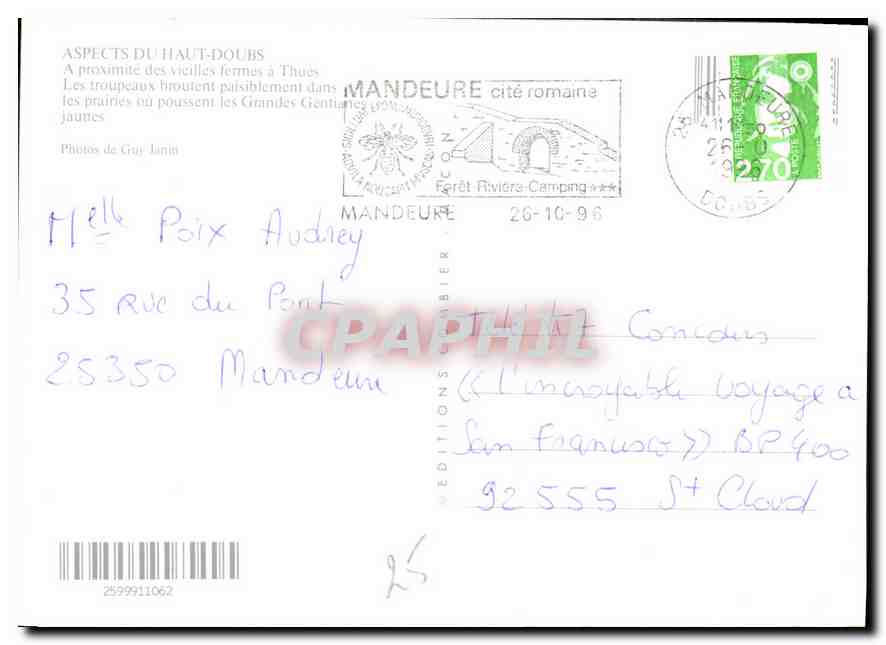 ASPECTS DU HAUT-DOUBS
A proximité des vieilles fermes à Thués
Les troupeaux broutent paisiblement dans
les prairies où poussent les Grandes Gentianes
jauttes
Photos de Guy Janin
MANDEURE cité romaine
Forêt-Rivière-Camping ***
MANDEURE 26-10-96
25 MANDEURE
DOUBS
REPUBLIQUE FRANÇAISE
LA POSTE
2,70
Melle Poix Audrey
35 Rue du Pont
25350 Mandeure
EDITIONS COMBIER MACON
CPAPHIL
Concours
« l'incroyable voyage a
San Francisco » BP 400
92555 St Cloud
2599911062
25